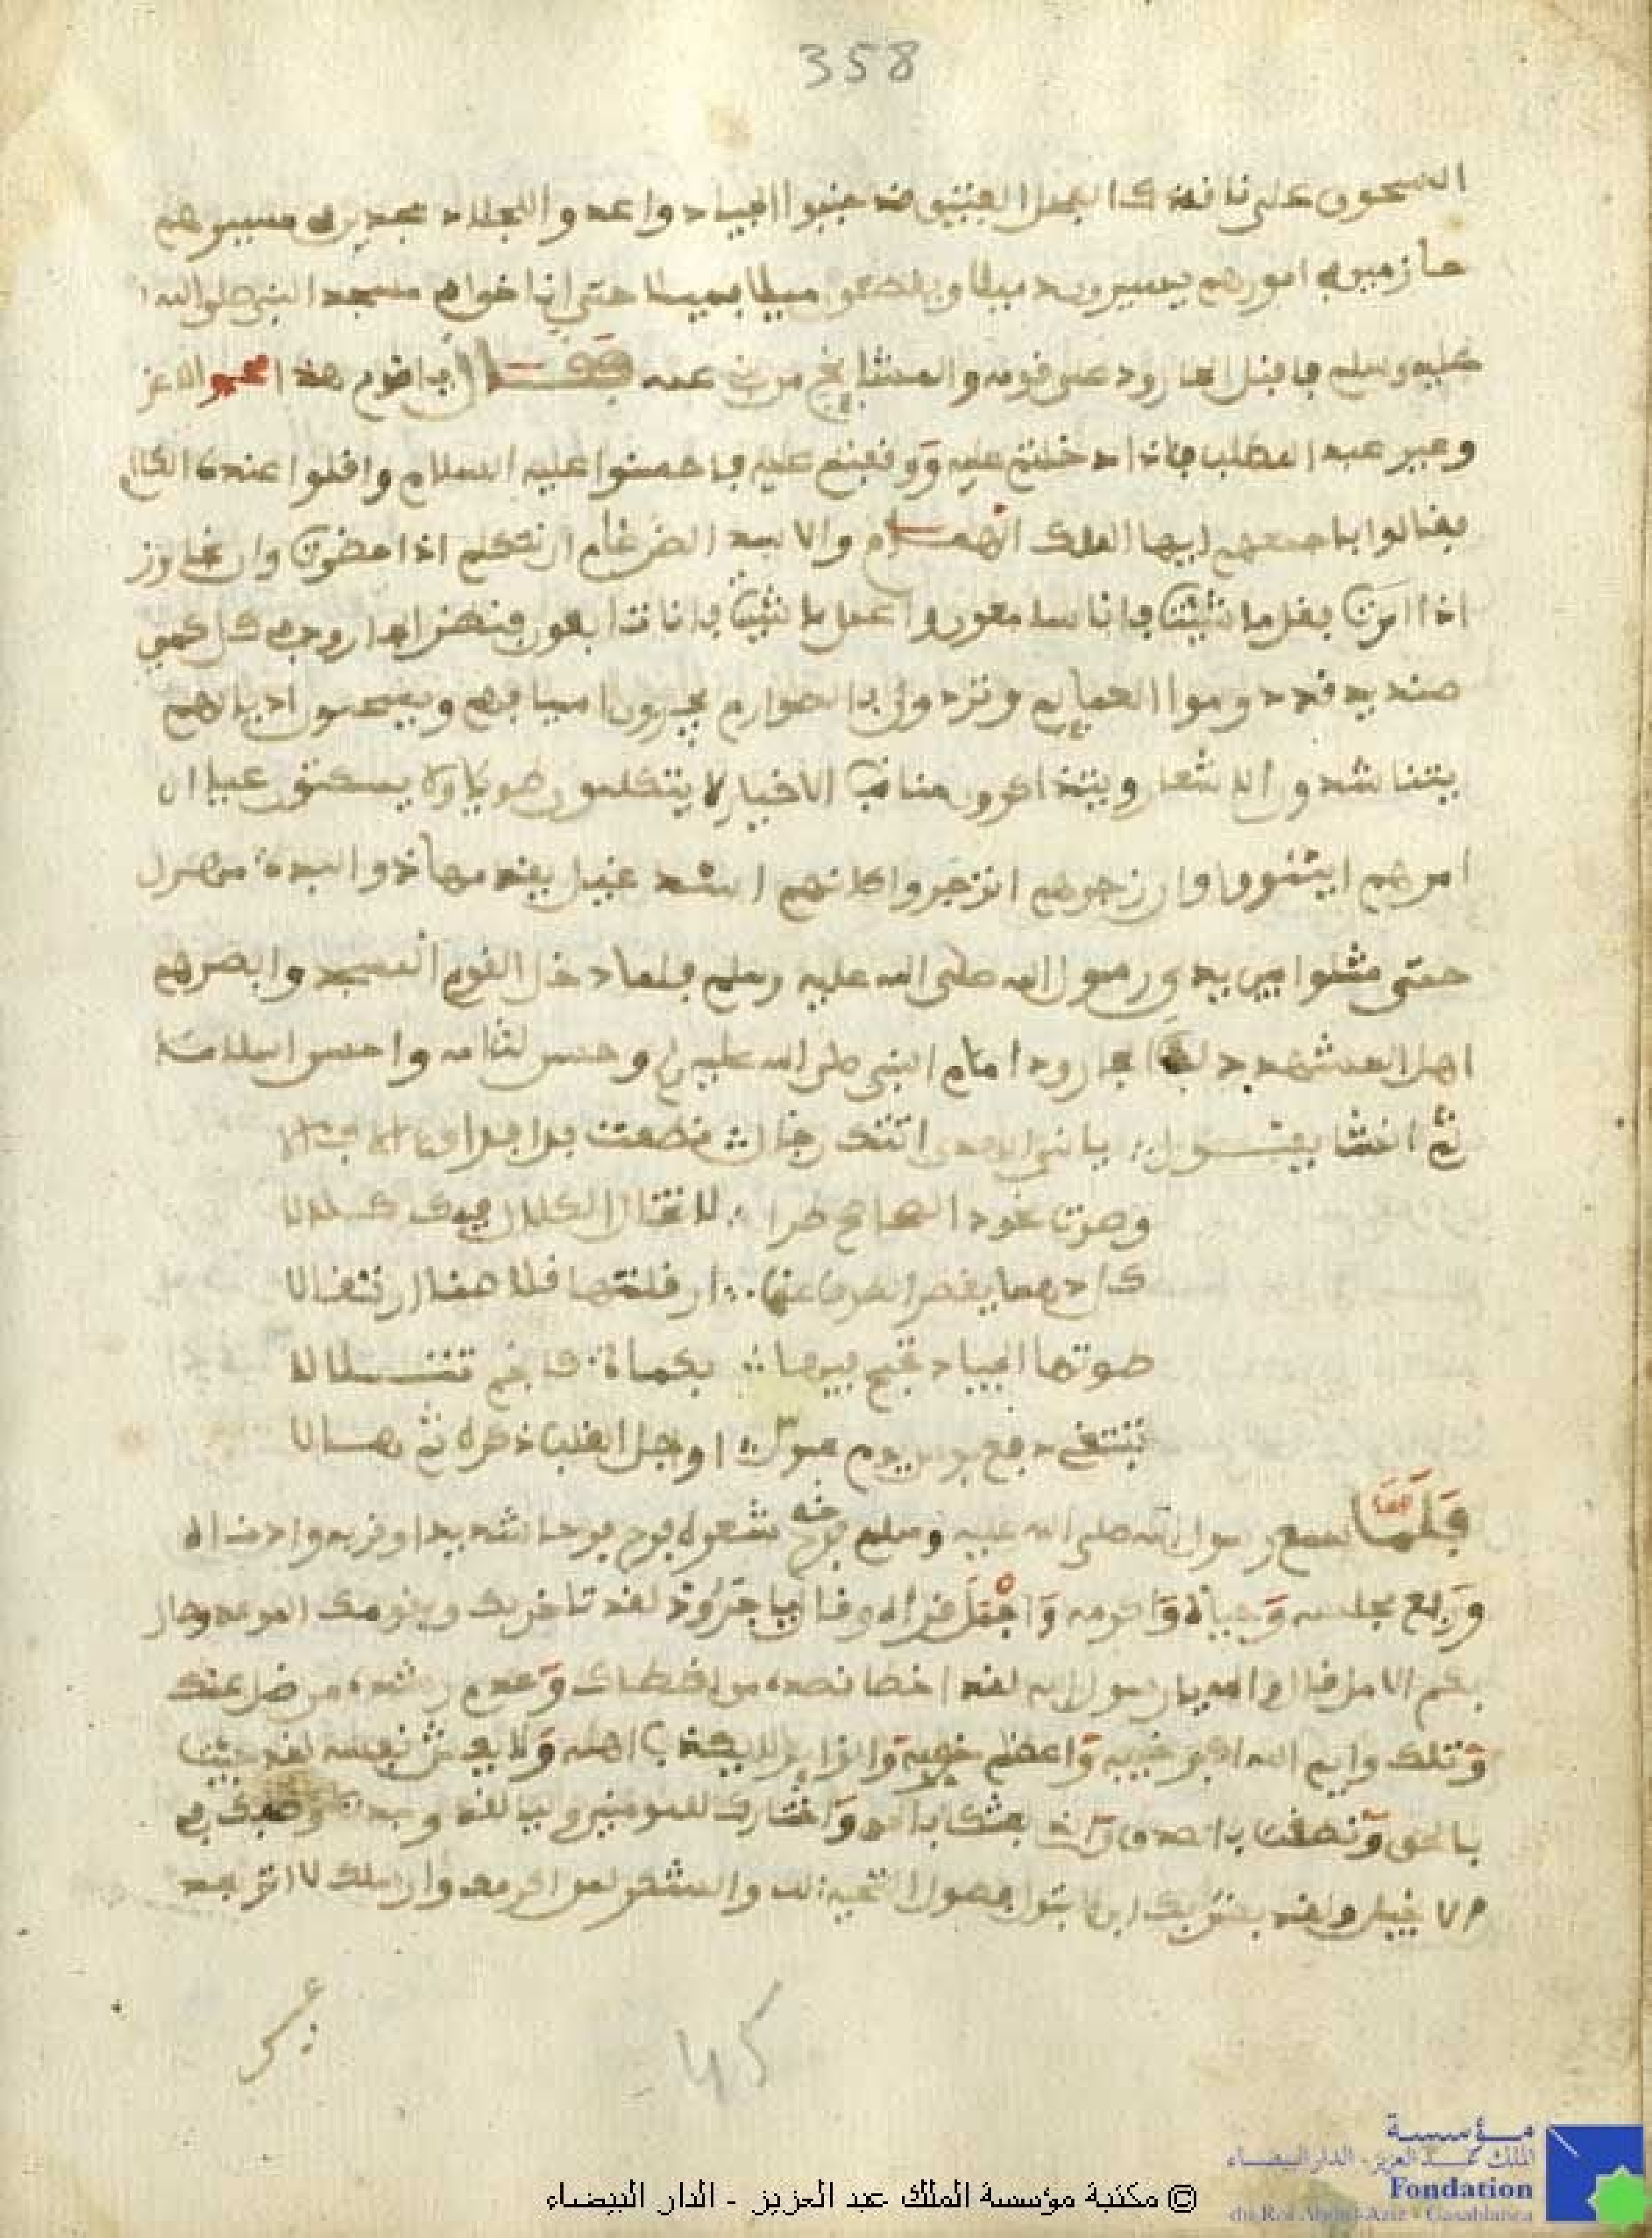 358
على ناقة كالفحل الفنيق قد جنبوا الجياد واعدوا للجلاد مجدين في مسيرهم
حازمين في امورهم يسيرون ميلا ويقطعون ميلا فميلا حتى اناخوا مسجد النبي صلى الله
عليه وسلم فاقبل الجارود على قومه والمشايخ من بني عمه فقال يا قوم هذا محمد الاغر
وخير عبد المطلب فاذا دخلتم عليه ووقفتم عليه فاحسنوا عليه السلام واقلوا عنده الكلام
فقالوا باجمعهم ايها الملك الهمام والاسد الضرغام لن نتكلم اذا حضرت ولن نجاوز
اذا امرت فقل ما شئت فانا سامعون واعمل ما شئت فانا تابعون فنهض الجارود في كل كمي
صنديد قد دوموا العمايم وتردوا بالصوارم يجرون اسيافهم ويسحبون اذيالهم
يتناشدون الاشعار ويتذاكرون مناقب الاخيار لا يتكلمون طويلا ولا يسكتون عيا ان
امرهم ايتمروا وان زجرهم انزجروا كانهم اسد غيل يقدمها ذو لبدة مهول
حتى مثلوا بين يدي رسول الله صلى الله عليه وسلم فلما دخل القوم المسجد وابصرهم
اهل المشهد دلف الجارود امام النبي صلى الله عليه وسلم وحسر لثامه واحسن سلامه
ثم انشا يقول يا نبي الهدى اتتك رجال قطعت فدفدا والا فالا
وطوت نحوك الصحاصح طرا لا تخال الكلال فيك كلالا
كل دهما يقصر الطرف عنها ارقلتها قلاصنا ارقالا
وطوتها الجياد تجمح فيها بكماة كانجم تتلالا
تبتغي دفع بوس يوم عبوس اوجل القلب ذكره ثم هالا
فلما سمع رسول الله صلى الله عليه وسلم شعره فرح فرحا شديدا وقربه وادناه
ورفع مجلسه وحياه واكرمه وقال يا جارود لقد تاخر بك وبقومك الموعد وطال
بكم الامد قال والله يا رسول الله لقد اخطا قصده من اخطاك وعدم رشده من ضل عنك
وتلك وايم الله اكبر خيبة واعظم حوبة والرايد لا يكذب اهله ولا يغش نفسه لقد جئت
بالحق ونطقت بالصدق والذي بعثك بالحق واختارك للمومنين وليا لقد وجدت وصفك في
الانجيل ولقد بشر بك ابن البتول فطول التحية لك والشكر لمن اكرمك وارسلك لا اثر بعد
45
© مكتبة مؤسسة الملك عبد العزيز - الدار البيضاء
مؤسسة
الملك عبد العزيز - الدار البيضاء
Fondation
du Roi Abdul-Aziz - Casablanca